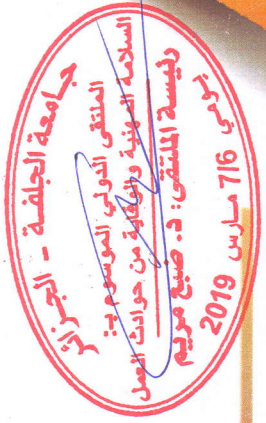 جامعة الجلفة - الجزائر
الملتقى الدولي الموسوم بـ:
السلامة المهنية والوقاية من حوادث العمل
رئيسة الملتقى: د. صبع مريم
يومي 7/6 مارس 2019